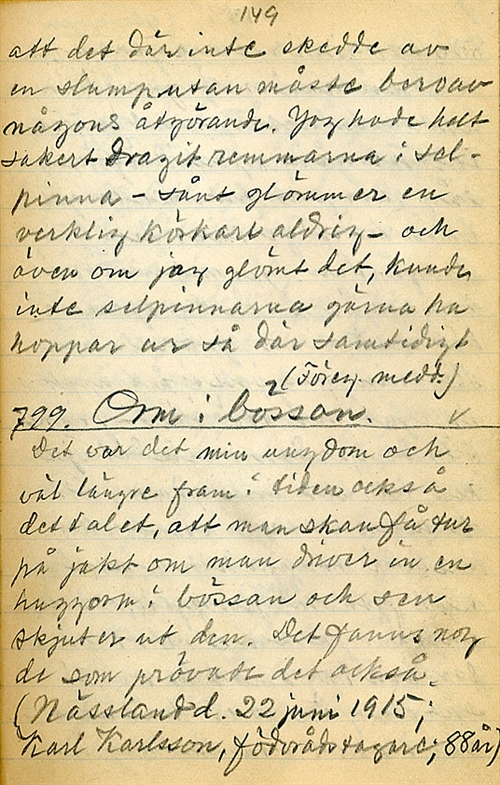 149
att det där inte skedde av
en slump utan måste bero av
någons åtgörande. Jag hade helt
säkert dragit remmarna i sel-
pinna - sånt glömmer en
verklig körkarl aldrig - och
även om jag glömt det, kunde
inte selpinnarna gärna ha
hoppar ur så där samtidigt
(Föreg. medd.)
799. Orm i bössan.
Det var det min ungdom och
väl längre fram i tiden också
det talet, att man skan få tur
på jakt om man driver in en
huggorm i bössan och sen
skjuter ut den. Det fanns nog
de som prövade det också.
(Nässland d. 22 juni 1915;
Karl Karlsson, födorådstagare, 88 år)